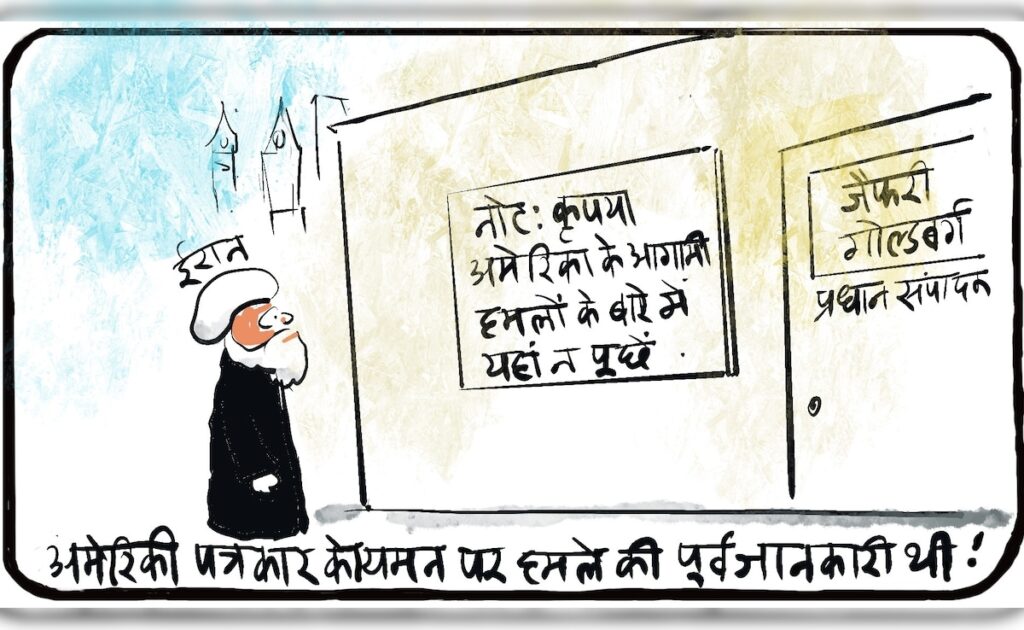 ईरान
नोट: कृपया
अमेरिका के आगामी
हमलों के बारे में
यहां न पूछें .
जैफरी
गोल्डबर्ग
प्रधान संपादक
अमेरिकी पत्रकार को यमन पर हमले की पूर्व जानकारी थी !